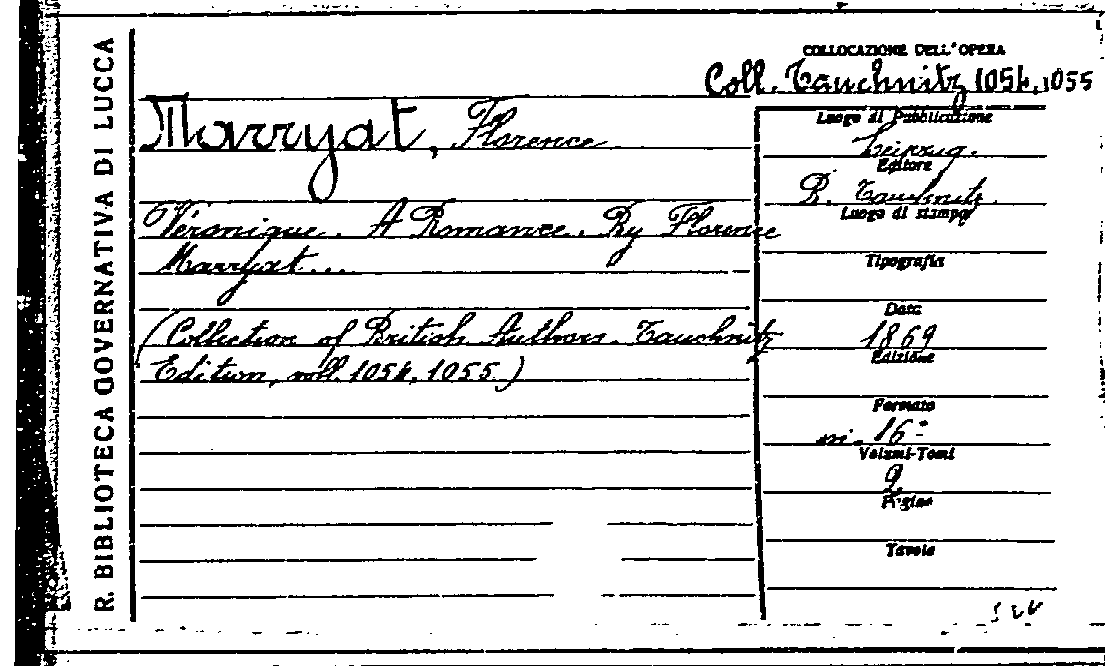 R. BIBLIOTECA GOVERNATIVA DI LUCCA
COLLOCAZIONE DELL'OPERA
Coll. Tauchnitz 1054, 1055
Marryat, Florence
Véronique. A Romance. By Florence
Marryat...
(Collection of British Authors. Tauchnitz
Edition, voll. 1054, 1055.)
Luogo di Pubblicazione
Leipzig.
Editore
B. Tauchnitz
Luogo di stampa
Tipografia
Data
1869
Edizione
Formato
in-16°
Volumi-Tomi
2
Pagine
Tavole